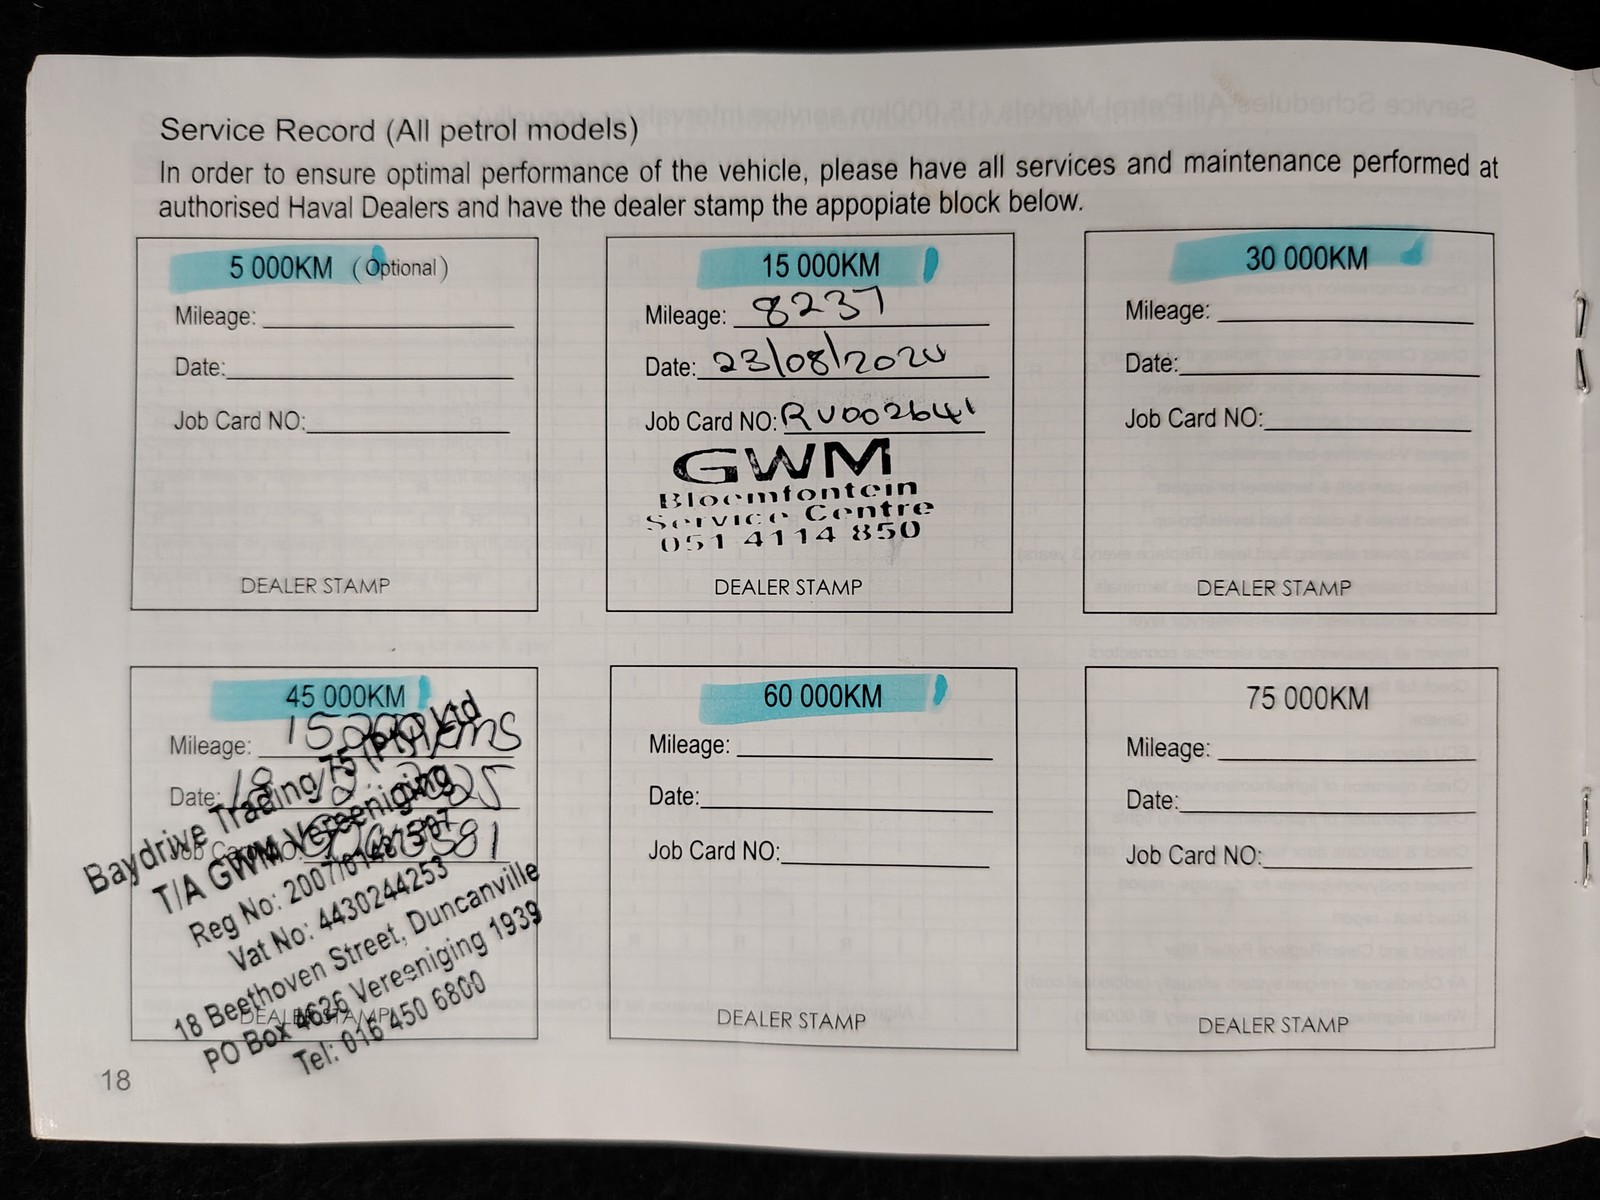 Service Record (All petrol models)
In order to ensure optimal performance of the vehicle, please have all services and maintenance performed at
authorised Haval Dealers and have the dealer stamp the appopiate block below.
5 000KM (Optional)
Mileage:
Date:
Job Card NO:
DEALER STAMP
15 000KM
Mileage: 8237
Date: 23/08/2024
Job Card NO: RV002641
GWM
Bloemfontein
Service Centre
051 4114 850
DEALER STAMP
30 000KM
Mileage:
Date:
Job Card NO:
DEALER STAMP
45 000KM
Mileage: kms
Date: 18
Job Card NO:
Baydrive Trading 75 (Pty) Ltd
T/A GWM Vereeniging
Reg No:
Vat No: 4430244253
18 Beethoven Street, Duncanville
PO Box 4626 Vereeniging 1939
Tel: 016 450 6800
DEALER STAMP
60 000KM
Mileage:
Date:
Job Card NO:
DEALER STAMP
75 000KM
Mileage:
Date:
Job Card NO:
DEALER STAMP
18